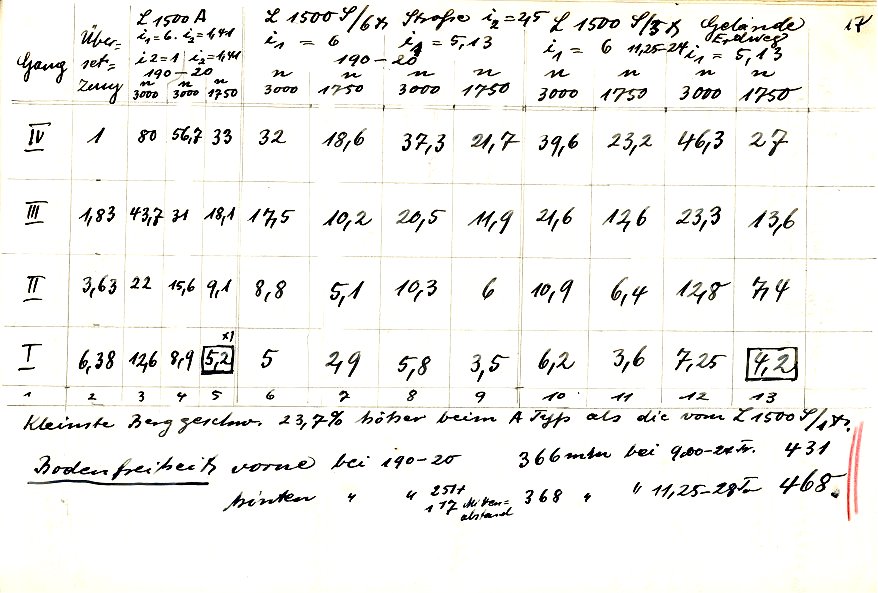 17
Gang Über- set- zung L 1500 A L 1500 S/6 to Straße i2=2,5 L 1500 S/3 to Gelände Erdweg
i1=6. i2=1,41 i1 = 6 i1 = 5,13 i1 = 6 11,25-24 i1 = 5,13
i2=1 i2=1,41 190-20
190-20 n n n n n n n n
n 3000 n 3000 n 1750 3000 1750 3000 1750 3000 1750 3000 1750
IV 1 80 56,7 33 32 18,6 37,3 21,7 39,6 23,2 46,3 27
III 1,83 43,7 31 18,1 17,5 10,2 20,5 11,9 21,6 12,6 23,3 13,6
II 3,63 22 15,6 9,1 8,8 5,1 10,3 6 10,9 6,4 12,8 7,4
x)
I 6,38 12,6 8,9 5,2 5 2,9 5,8 3,5 6,2 3,6 7,25 4,2
1 2 3 4 5 6 7 8 9 10 11 12 13
Kleinste Berggeschw. 23,7% höher beim A Typ als die vom L 1500 S/
Bodenfreiheit vorne bei 190-20 366 mm bei 9,00-24 Tr. 431
hinten " " 368 " " 11,25-28 Tr 468.
117 Mitten= abstand